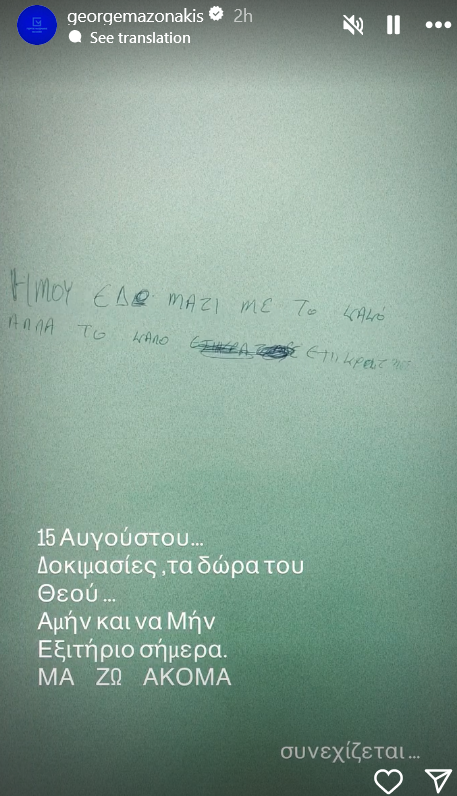 georgemazonakis 2h
See translation
ΗΜΟΥ ΕΔΩ ΜΑΖΙ ΜΕ ΤΟ ΚΑΚό
ΑΛΛΑ ΤΟ ΚΑΛΟ
15 Αυγούστου...
Δοκιμασίες ,τα δώρα του
Θεού ...
Αμήν και να Μήν
Εξιτήριο σήμερα.
ΜΑ ΖΩ ΑΚΟΜΑ
συνεχίζεται ...